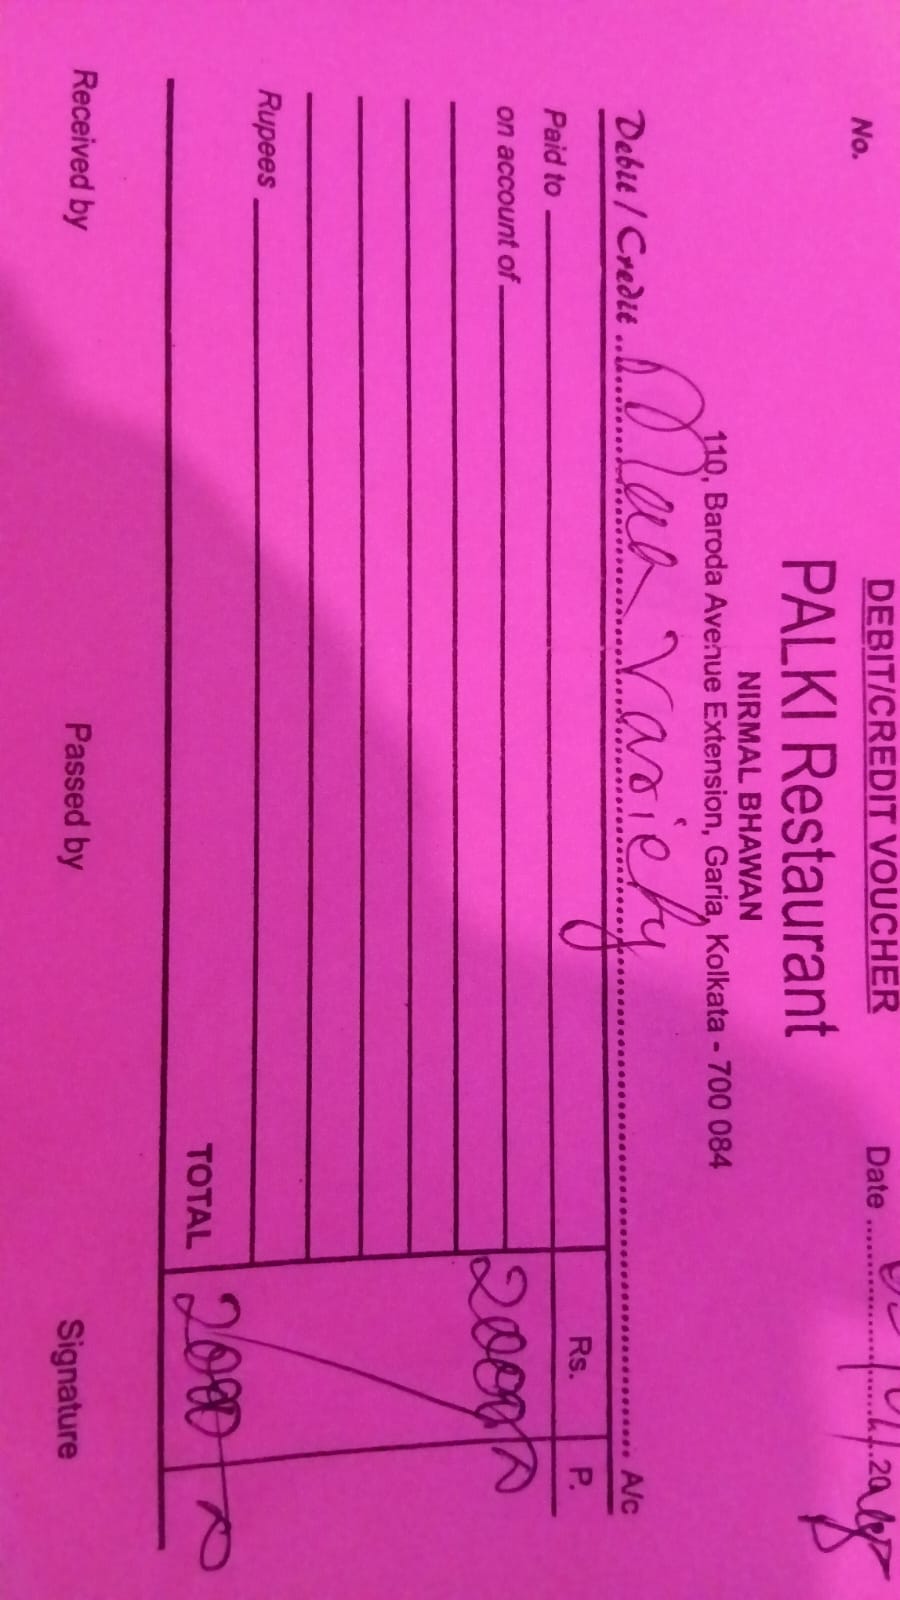 DEBIT/CREDIT VOUCHER
No. Date
PALKI Restaurant
NIRMAL BHAWAN
110, Baroda Avenue Extension, Garia, Kolkata - 700 084
Debit / Credit Maa Variety A/c
Paid to Rs. P.
on account of 2000
Rupees
TOTAL 2000
Received by Passed by Signature